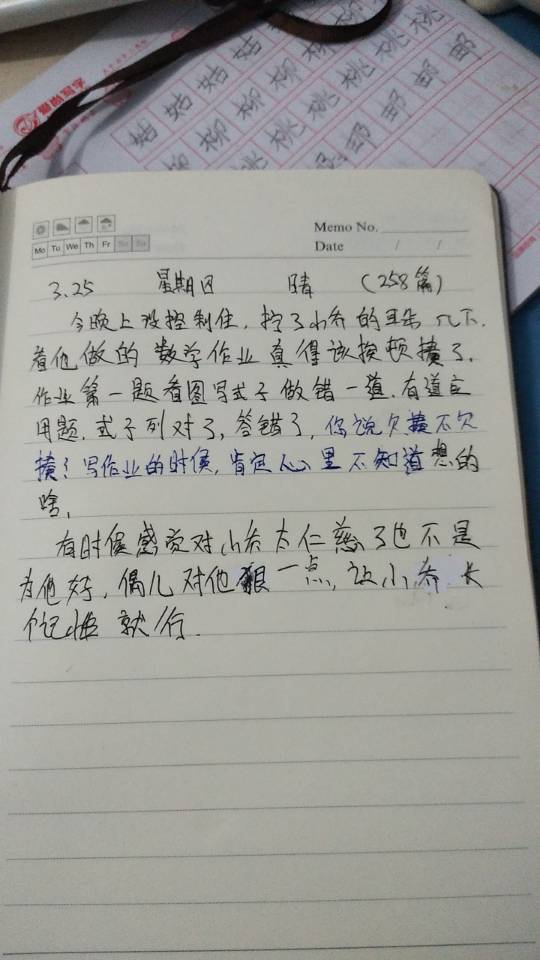 姑 姑 姑 姑
柳 柳 柳 柳
桃 桃 桃 桃 桃
Memo No.
Mo Tu We Th Fr Sa Su
Date / /
3.25 星期四 晴 (258篇)
今晚上没控制住,拧了小乔的耳朵几下,
看他做的数学作业真得该挨顿揍了,
作业第一题看图写式子做错一道,有道应
用题,式子列对了,答错了,你说欠揍不欠
揍!写作业的时候,肯定心里不知道想的
啥,
有时候感觉对小乔太仁慈了也不是
为他好,偶儿对他狠一点,让小乔长
个记性就行.